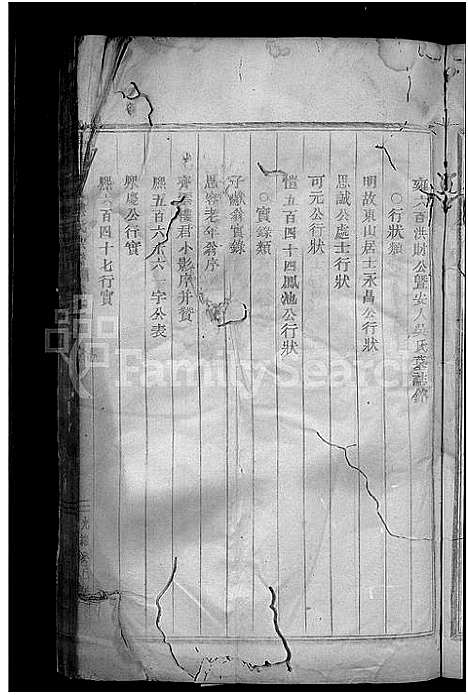 雍六百洪財公暨安人吳氏墓誌銘
○行狀類
明故東山居士永昌公行狀
思誠公處士行狀
可元公行狀
愷五百四十四鳳池公行狀
○實錄類
子獻翁實錄
愚麓老年翁序
齊雲樓君小影序并贊
熙五百六十六一字公表
熙慶公行實
熙六百四十七行實
FamilySearch